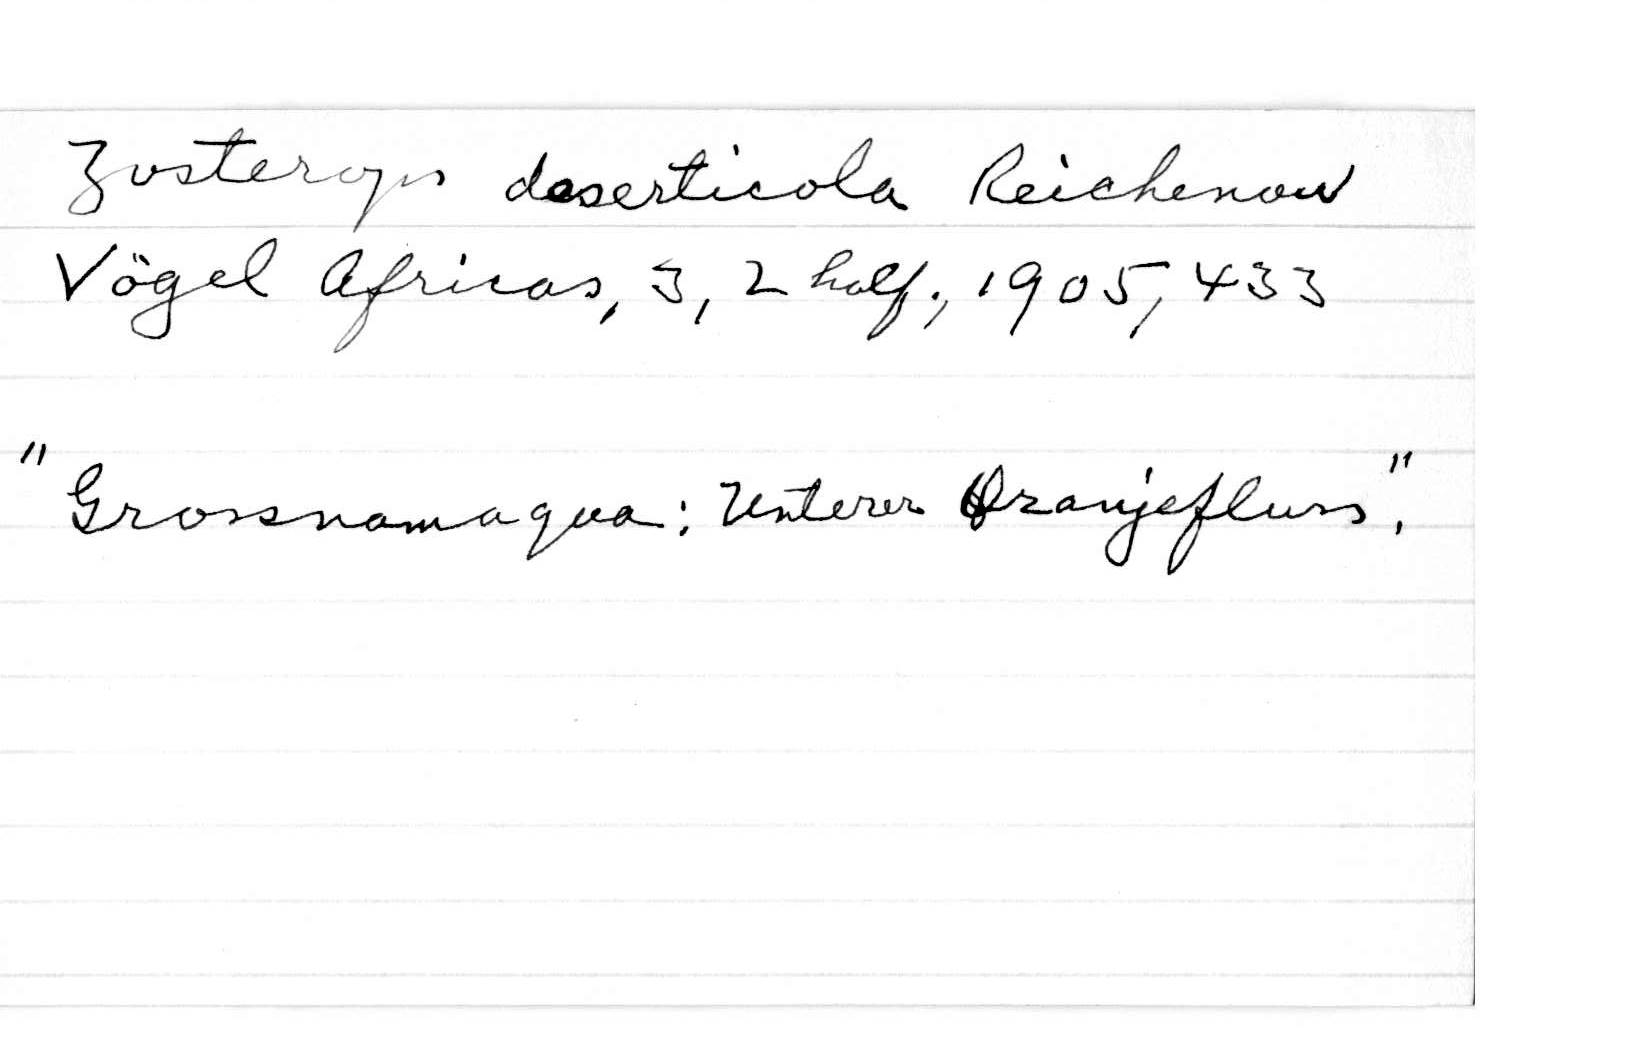 Zosterops deserticola Reichenow
Vögel Africas, 3, 2 half., 1905, 433
"Grossnamaqua: Unterer Oranjefluss".